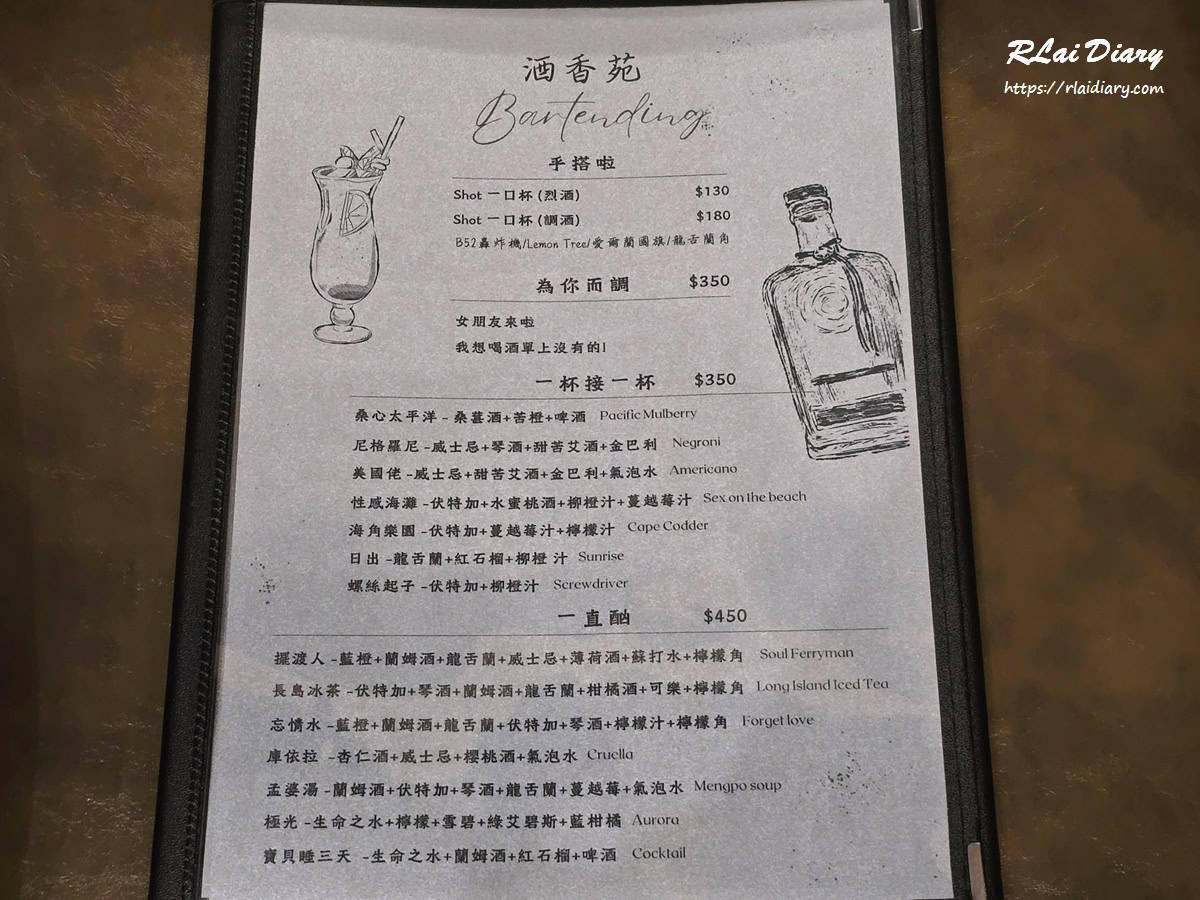 RLai Diary
https://rlaidiary.com
酒香苑
Bartending
乎搭啦
Shot 一口杯 (烈酒) $130
Shot 一口杯 (調酒) $180
B52轟炸機/Lemon Tree/愛爾蘭國旗/龍舌蘭角
為你而調 $350
女朋友來啦
我想喝酒單上沒有的!
一杯接一杯 $350
桑心太平洋 - 桑葚酒+苦橙+啤酒 Pacific Mulberry
尼格羅尼 -威士忌+琴酒+甜苦艾酒+金巴利 Negroni
美國佬 -威士忌+甜苦艾酒+金巴利+氣泡水 Americano
性感海灘 -伏特加+水蜜桃酒+柳橙汁+蔓越莓汁 Sex on the beach
海角樂園 -伏特加+蔓越莓汁+檸檬汁 Cape Codder
日出 -龍舌蘭+紅石榴+柳橙 汁 Sunrise
螺絲起子 -伏特加+柳橙汁 Screwdriver
一直酗 $450
擺渡人 -藍橙+蘭姆酒+龍舌蘭+威士忌+薄荷酒+蘇打水+檸檬角 Soul Ferryman
長島冰茶 -伏特加+琴酒+蘭姆酒+龍舌蘭+柑橘酒+可樂+檸檬角 Long Island Iced Tea
忘情水 -藍橙+蘭姆酒+龍舌蘭+伏特加+琴酒+檸檬汁+檸檬角 Forget love
庫依拉 -杏仁酒+威士忌+櫻桃酒+氣泡水 Cruella
孟婆湯 -蘭姆酒+伏特加+琴酒+龍舌蘭+蔓越莓+氣泡水 Mengpo soup
極光 -生命之水+檸檬+雪碧+綠艾碧斯+藍柑橘 Aurora
寶貝睡三天 -生命之水+蘭姆酒+紅石榴+啤酒 Cocktail